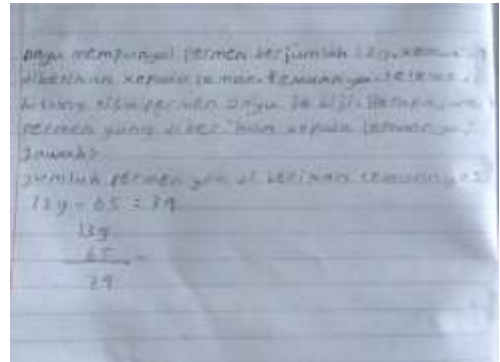 mempunyai permen berjumlah
diberikan kepada teman-temannya setelah di
hitung sisa permen biji. Berapa
permen yang diberikan kepada temannya?
Jawab:
Jumlah permen yang di berikan temannya
139 - 65 = 79
139
65 -
79